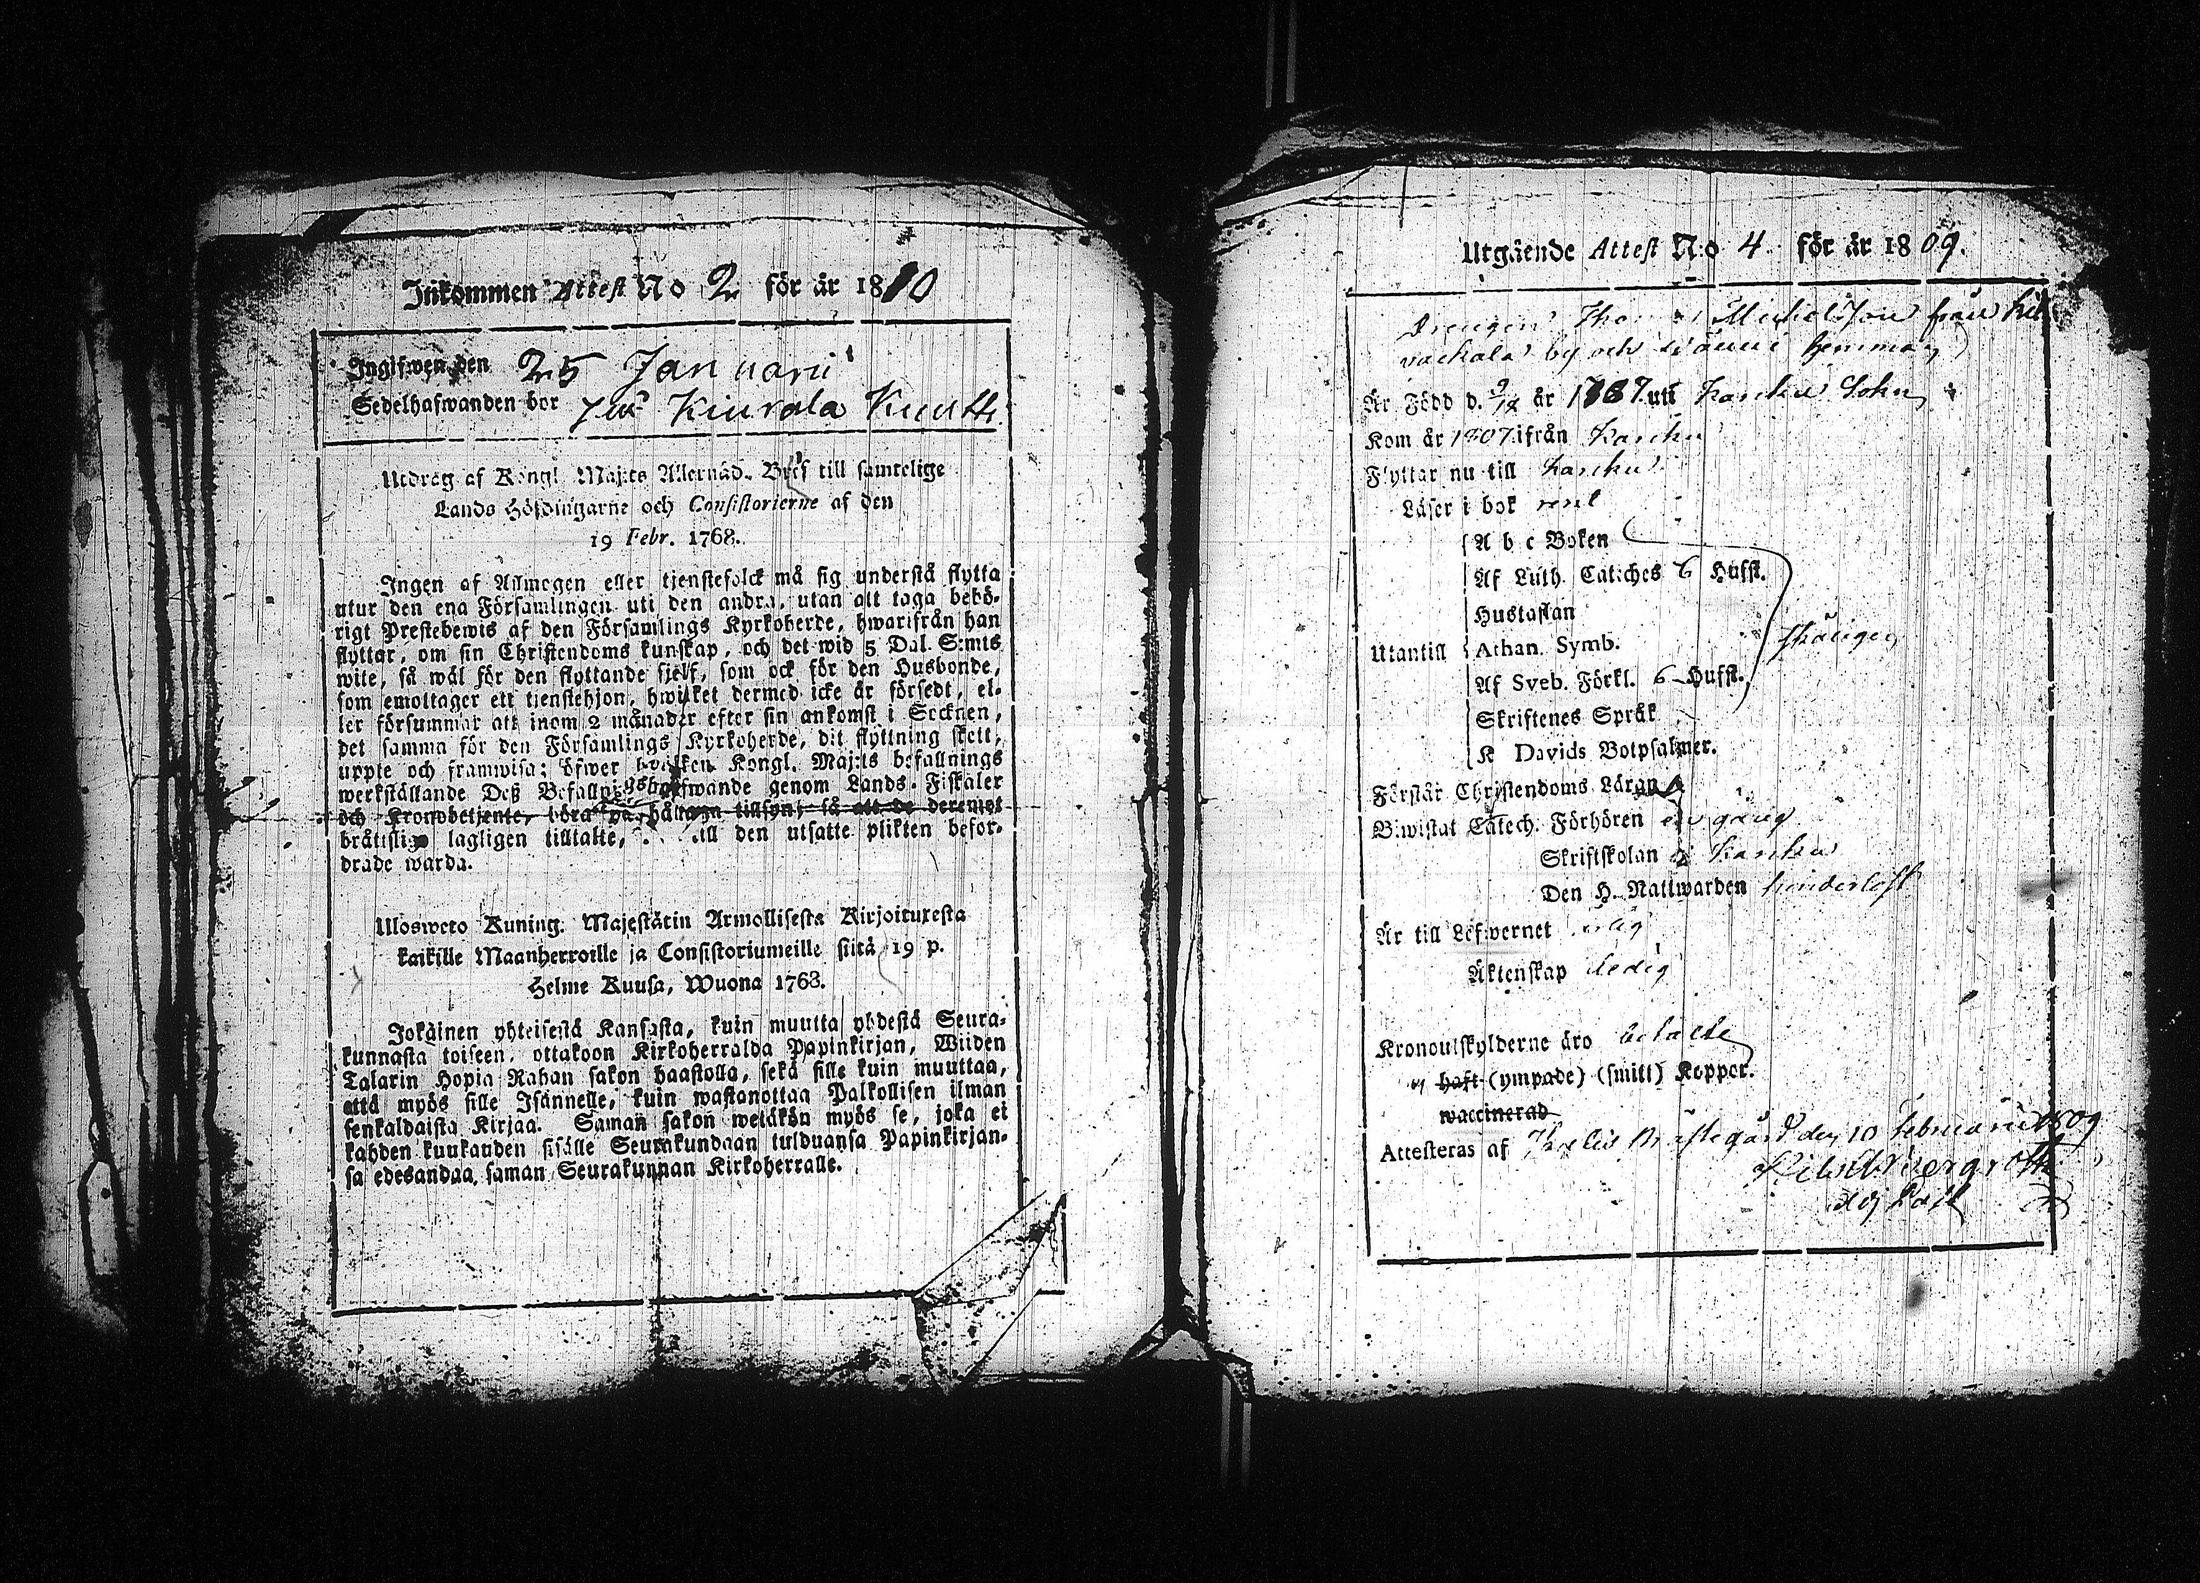 Inkommen Attest No 2 för år 1810
Ingifwen den 25 Januari
Sedelhafwanden bor Kiurala Knutti
Utdrag af Kongl. Maj:ts Allernåd. Bref till samtelige
Lands Höfdingarne och Consistorierne af den
19 Febr. 1768.
Ingen af Allmogen eller tjenstefolck må sig understå flytta
utur den ena Församlingen uti den andra, utan att taga behö-
rigt Prestebewis af den Församlings Kyrkoherde, hwarifrån han
flyttar, om sin Christendoms kunskap, och det wid 5 Dal. S:mts
wite, så wäl för den flyttande sjelf, som ock för den Husbonde,
som emottager ett tjenstehjon, hwilket dermed icke är försedt, el-
ler försummar att inom 2 månader efter sin ankomst i Socknen,
det samma för den Församlings Kyrkoherde, dit flyttning skett,
uppte och framwisa; öfwer hwilken Kongl. Maj:ts befallnings
werkställande Deß Befallningshafwande genom Lands-Fiskaler
och Kronobetjente, böra hålla tillsyn, så att de deremot
bråttslige lagligen tilltalte, till den utsatte plikten befor-
drade warda.
Ulosweto Kuning. Majestätin Armollisesta Kirjoituxesta
kaikille Maanherroille ja Consistoriumeille siitä 19 p.
Helme Kuusa, Wuona 1768.
Jokainen yhteisestä Kansasta, kuin muutta yhdestä Seura-
kunnasta toiseen, ottakoon Kirkoherralda Papinkirjan, Wiiden
Talarin Hopia Rahan sakon haastolla, sekä sille kuin muuttaa,
että myös sille Isännelle, kuin wastanottaa Palkollisen ilman
senkaldaista Kirjaa. Saman sakon wetäkön myös se, joka ei
kahden kuukauden sisälle Seurakundaan tulduansa Papinkirjan-
sa edesandaa saman Seurakunnan Kirkoherralle.
Utgående Attest N:o 4 för år 1809.
Drengen Thomas Michelsson från
by och hemman
Är Född d. 9/12 år 1787 uti Karcku Sokn
Kom år 1807 ifrån Karcku
Flyttar nu till Karcku
Läser i bok rent
A b c Boken
Af Luth. Cateches 6 Hufst.
Hustaflan
Utantill Athan. Symb.
Af Sveb. Förkl. 6 Hufst.
Skriftenes Språk
K Davids Botpsalmer.
Förstår Christendoms Läran
Biwistat Catech. Förhören en gång
Skriftskolan i Karcku
Den H. Nattwarden hinderlöst
Är till Lefwernet ärlig
Äktenskap ledig
Kronoutskylderne äro betalde
ej haft (ympade) (smitt) Koppor.
waccinerad
Attesteras af Prästegård den 10 Februarii 1809